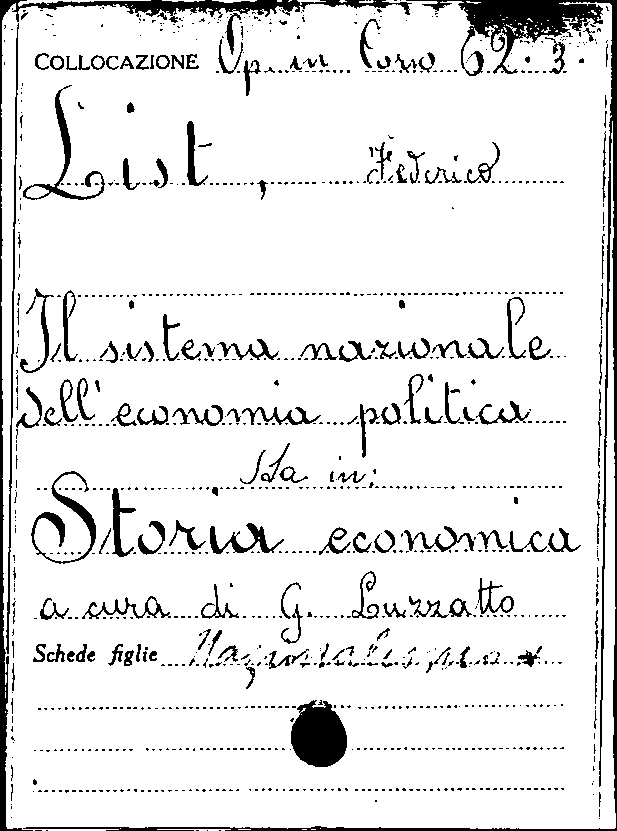 COLLOCAZIONE Op. in Corso 62.3.
List, Federico
Il sistema nazionale
dell'economia politica
Sta in:
Storia economica
a cura di G. Luzzatto
Schede figlie Nazionalismo *